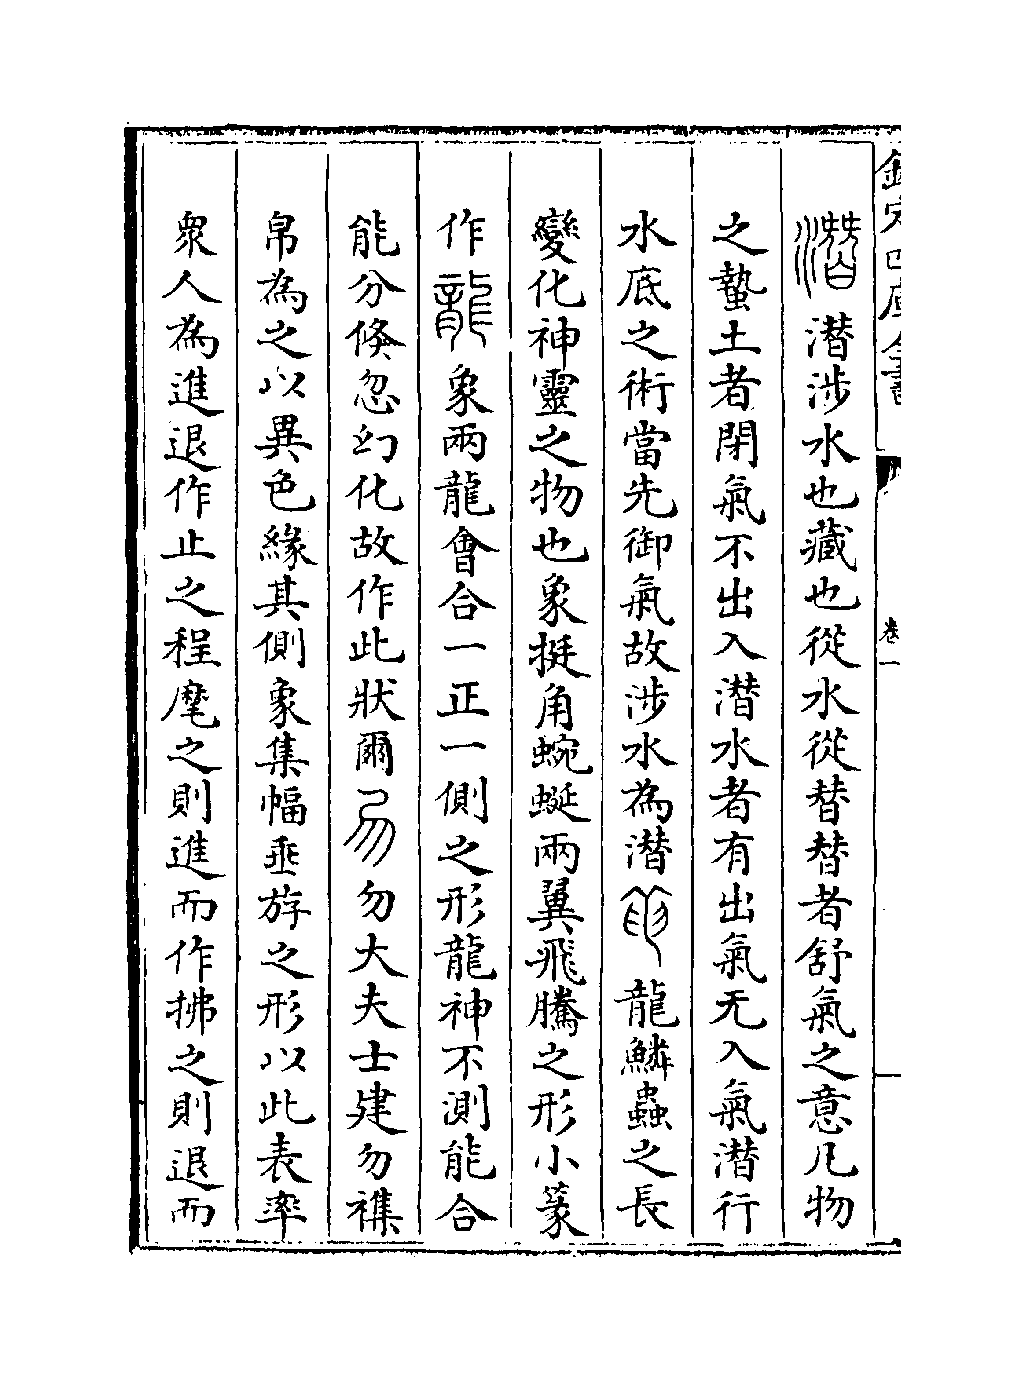 欽定四庫全書
卷一
潛涉水也藏也從水從朁朁者舒氣之意凡物
之蟄土者閉氣不出入潛水者有出氣无入氣潛行
水底之術當先御氣故涉水為潛 龍鱗蟲之長
變化神靈之物也象挺角蜿蜒兩翼飛騰之形小篆
作龍象兩龍會合一正一側之形龍神不測能合
能分倏忽幻化故作此狀爾 勿大夫士建勿襍
帛為之以異色緣其側象集幅垂斿之形以此表率
衆人為進退作止之程麾之則進而作拂之則退而